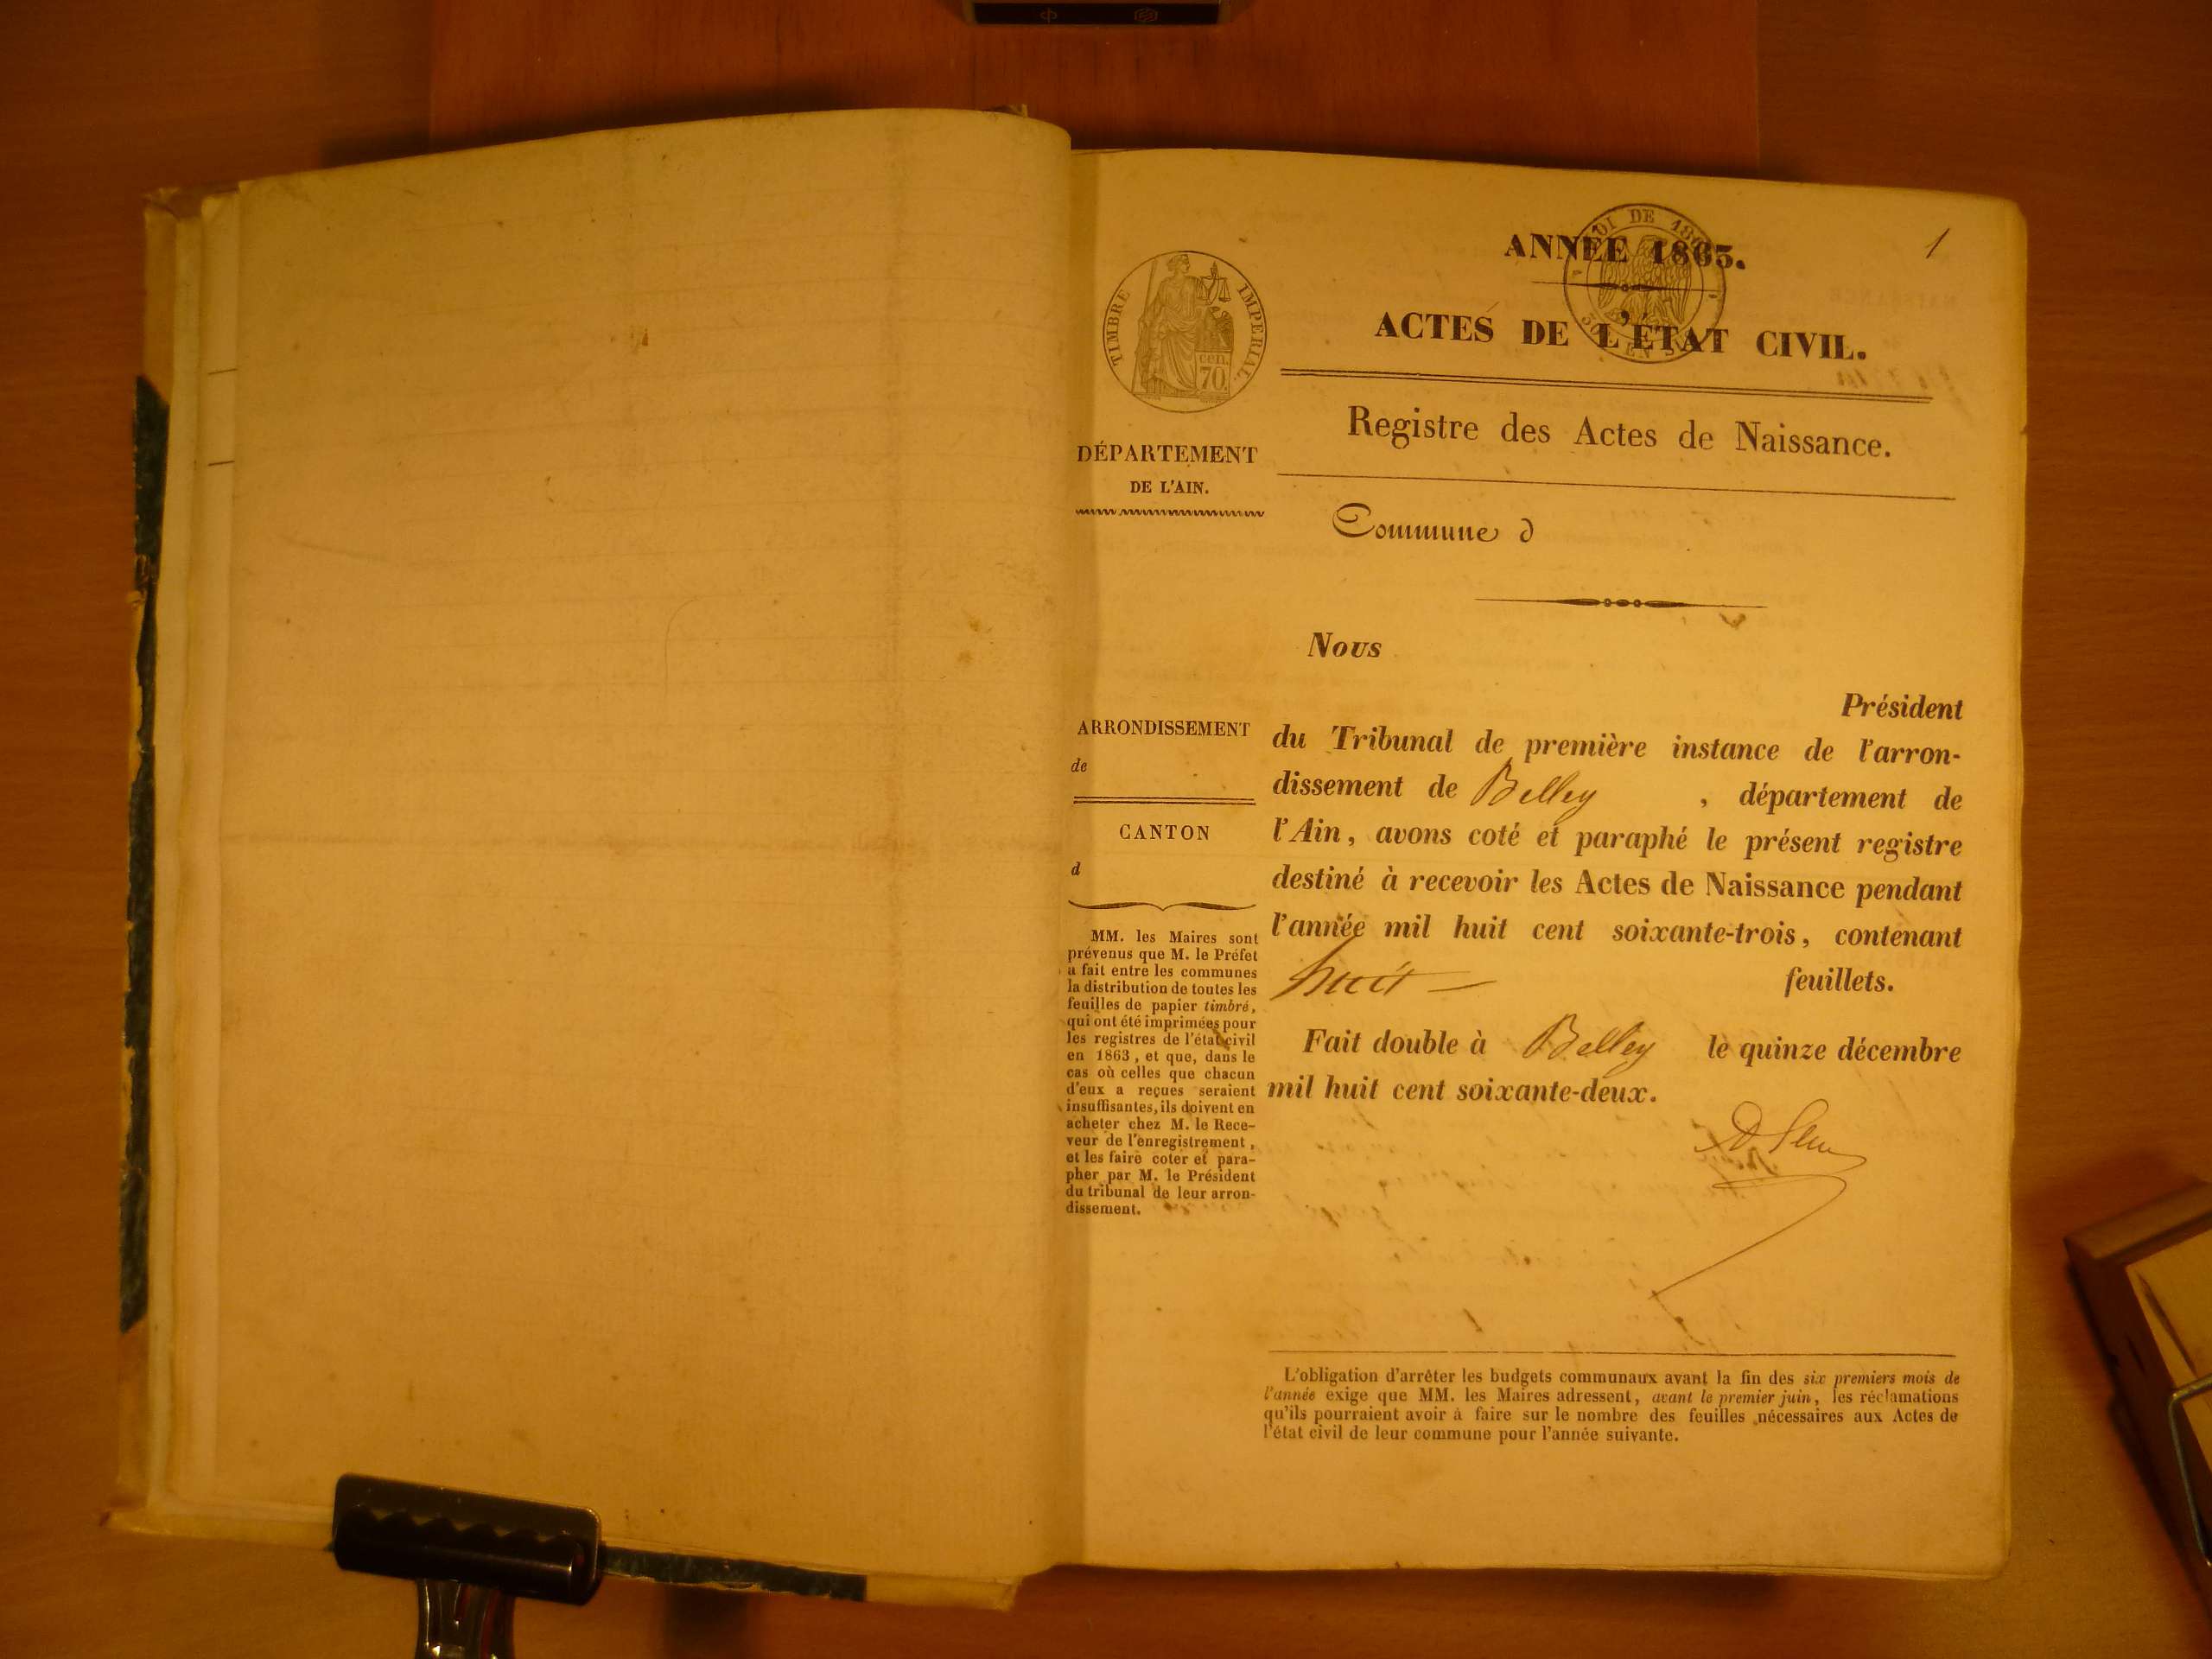 1
ANNÉE 1863.
LOI DE 18
ACTES DE L'ÉTAT CIVIL.
TIMBRE IMPERIAL.
cen.
70.
Registre des Actes de Naissance.
DÉPARTEMENT
DE L'AIN.
Commune d
Nous
Président
du Tribunal de première instance de l'arron-
dissement de Belley , département de
l'Ain, avons coté et paraphé le présent registre
destiné à recevoir les Actes de Naissance pendant
l'année mil huit cent soixante-trois, contenant
huit — feuillets.
Fait double à Belley le quinze décembre
mil huit cent soixante-deux.
ARRONDISSEMENT
de
CANTON
d
MM. les Maires sont
prévenus que M. le Préfet
a fait entre les communes
la distribution de toutes les
feuilles de papier timbré,
qui ont été imprimées pour
les registres de l'état civil
en 1863, et que, dans le
cas où celles que chacun
d'eux a reçues seraient
insuffisantes, ils doivent en
acheter chez M. le Rece-
veur de l'enregistrement,
et les faire coter et para-
pher par M. le Président
du tribunal de leur arron-
dissement.
L'obligation d'arrêter les budgets communaux avant la fin des six premiers mois de
l'année exige que MM. les Maires adressent, avant le premier juin, les réclamations
qu'ils pourraient avoir à faire sur le nombre des feuilles nécessaires aux Actes de
l'état civil de leur commune pour l'année suivante.